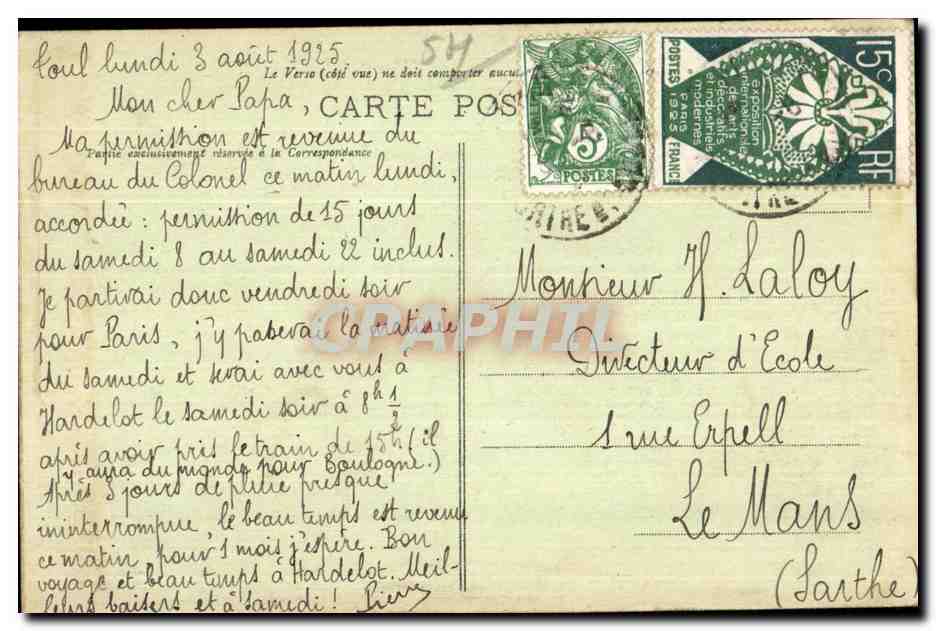 Toul lundi 3 août 1925
5H
Le Verso (côté vue) ne doit comporter aucu
Mon cher Papa,
CARTE POS
Ma permission est revenue du
Partie exclusivement réservée à la Correspondance
bureau du Colonel ce matin lundi,
accordée : permission de 15 jours
du samedi 8 au samedi 22 inclus.
Je partirai donc vendredi soir
pour Paris, j'y passerai la matinée
du samedi et serai avec vous à
Hardelot le samedi soir à 8h 1/2
après avoir pris le train de 15h (il
y aura du monde pour Boulogne.)
Après 3 jours de pluie presque
ininterrompue, le beau temps est revenu
ce matin, pour 1 mois j'espère. Bon
voyage et beau temps à Hardelot. Meil-
leurs baisers et à samedi ! Pierre
5c
POSTES
15c
POSTES FRANCE
exposition
internationale
des arts
décoratifs
et industriels
modernes
PARIS
1925
RF
CPAPHIL
Monsieur H. Laloy
Directeur d'Ecole
1 rue Erpell
Le Mans
(Sarthe)